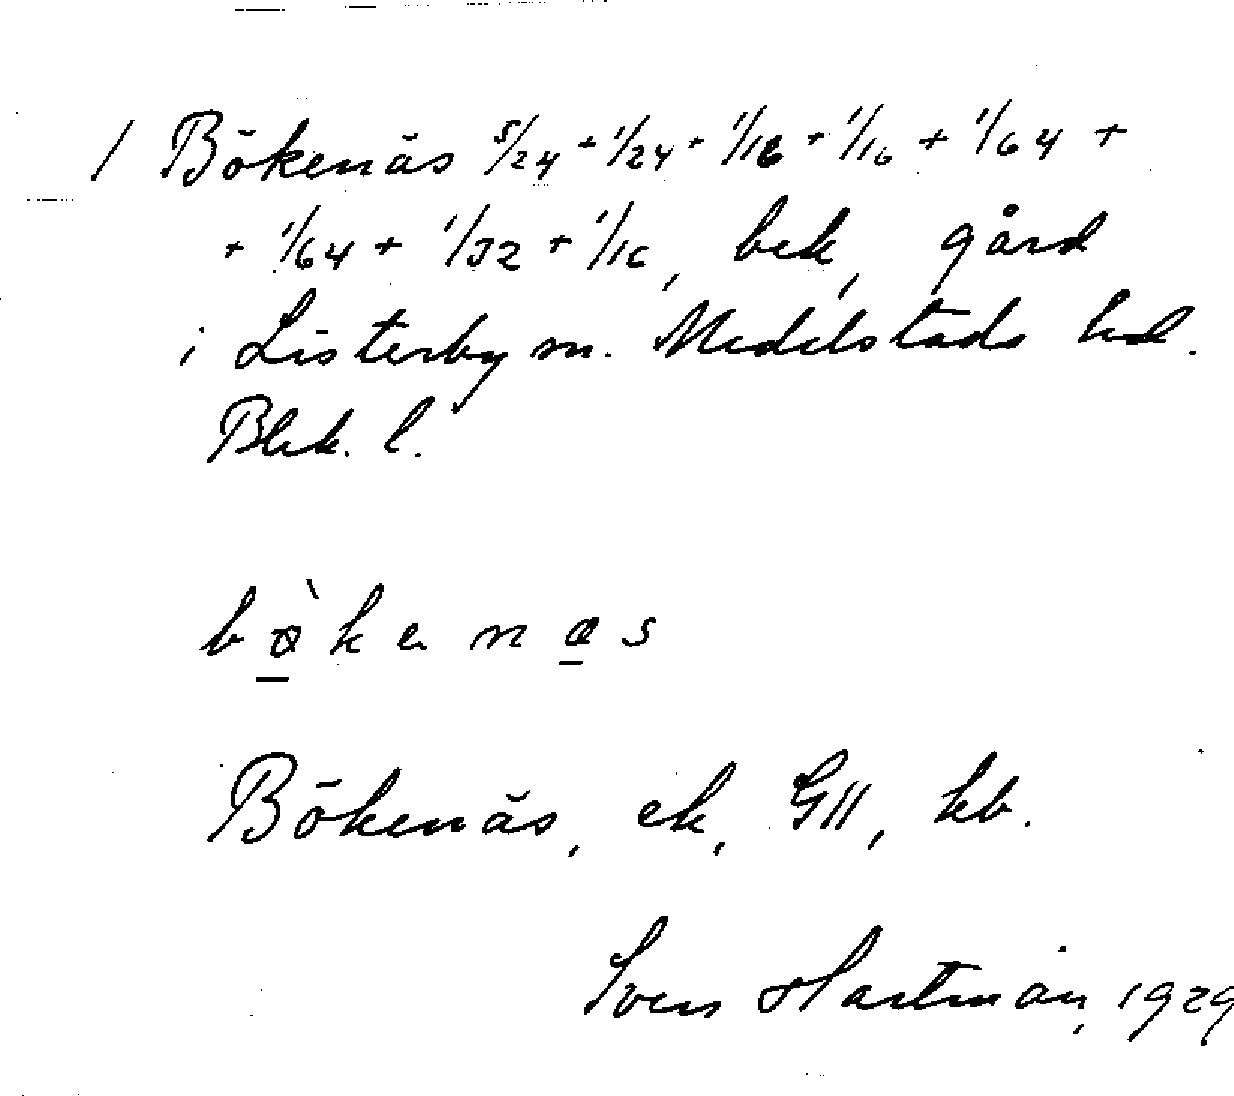 1 Bökenäs 5/24 + 1/24 + 1/16 + 1/16 + 1/64 +
+ 1/64 + 1/32 + 1/16, bek, gård
i Listerby sn. Medelstads hd.
Blek. l.
bø̀kenæs
Bökenäs, ek, GII, kb.
Sven Hartman, 1929